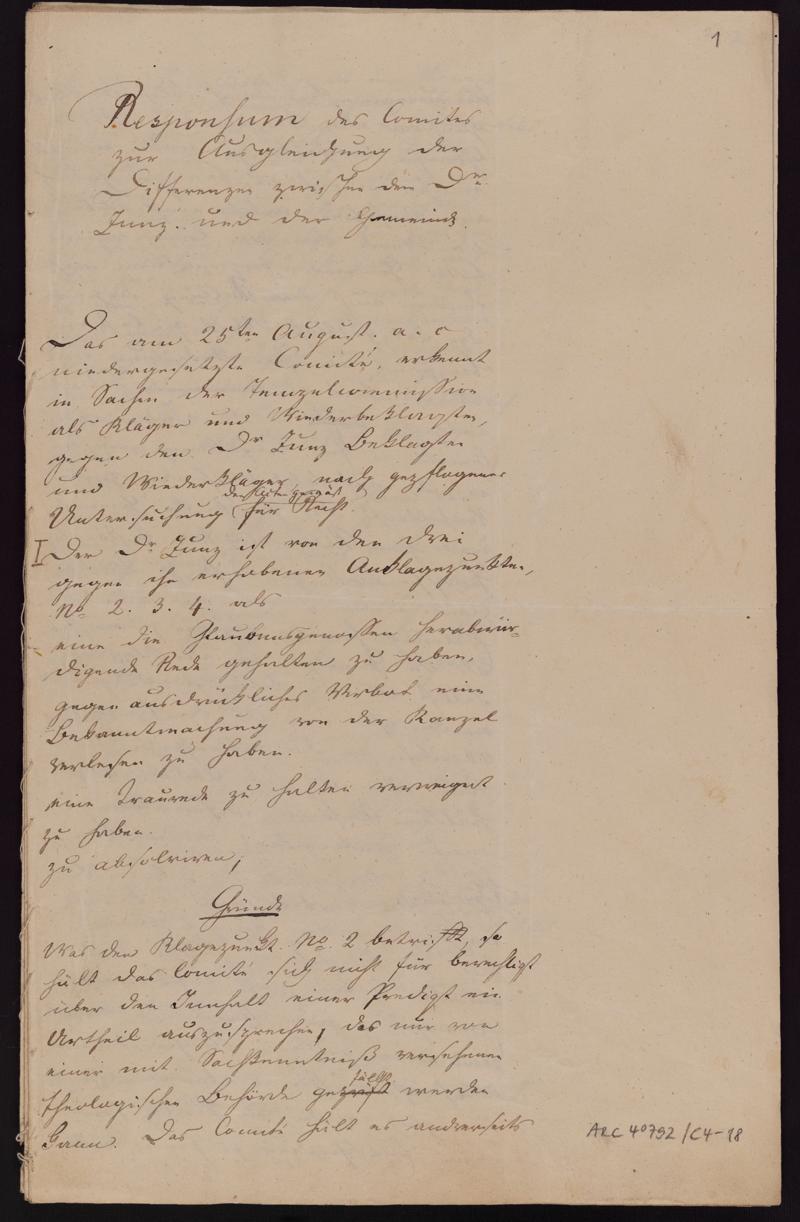 1
Responsum des Comites
zur Ausgleichung der
Differenzen zwischen dem Dr.
Zunz. und der Gemeinde.
Das am 25ten August. a. c
niedergesetzte Comité, erkennt
in Sachen der Tempelcommission
als Kläger und Wiederbeklagten,
gegen den Dr Zunz Beklagten
und Wiederkläger, nach gepflogener
den Acten gemäß
Untersuchung für Recht.
I Der Dr Zunz ist von den drei
gegen ihn erhobenen Anklagepunkten,
No 2. 3. 4. als
eine die Glaubensgenossen herabwür-
digende Rede gehalten zu haben,
gegen ausdrückliches Verbot eine
Bekanntmachung von der Kanzel
verlesen zu haben.
eine Traurede zu halten verweigert
zu haben.
zu absolviren,
Gründe
Was den Klagepunkt. No. 2 betrifft, so
hält das Comité sich nicht für berechtigt
über den Innhalt einer Predigt ein
Urtheil auszusprechen, das nur von
einer mit Sachkenntniß versehenen
fällt
theologischen Behörde ge werden
kann. Das Comité hält es andrerseits
ARC 4°792/C4-18